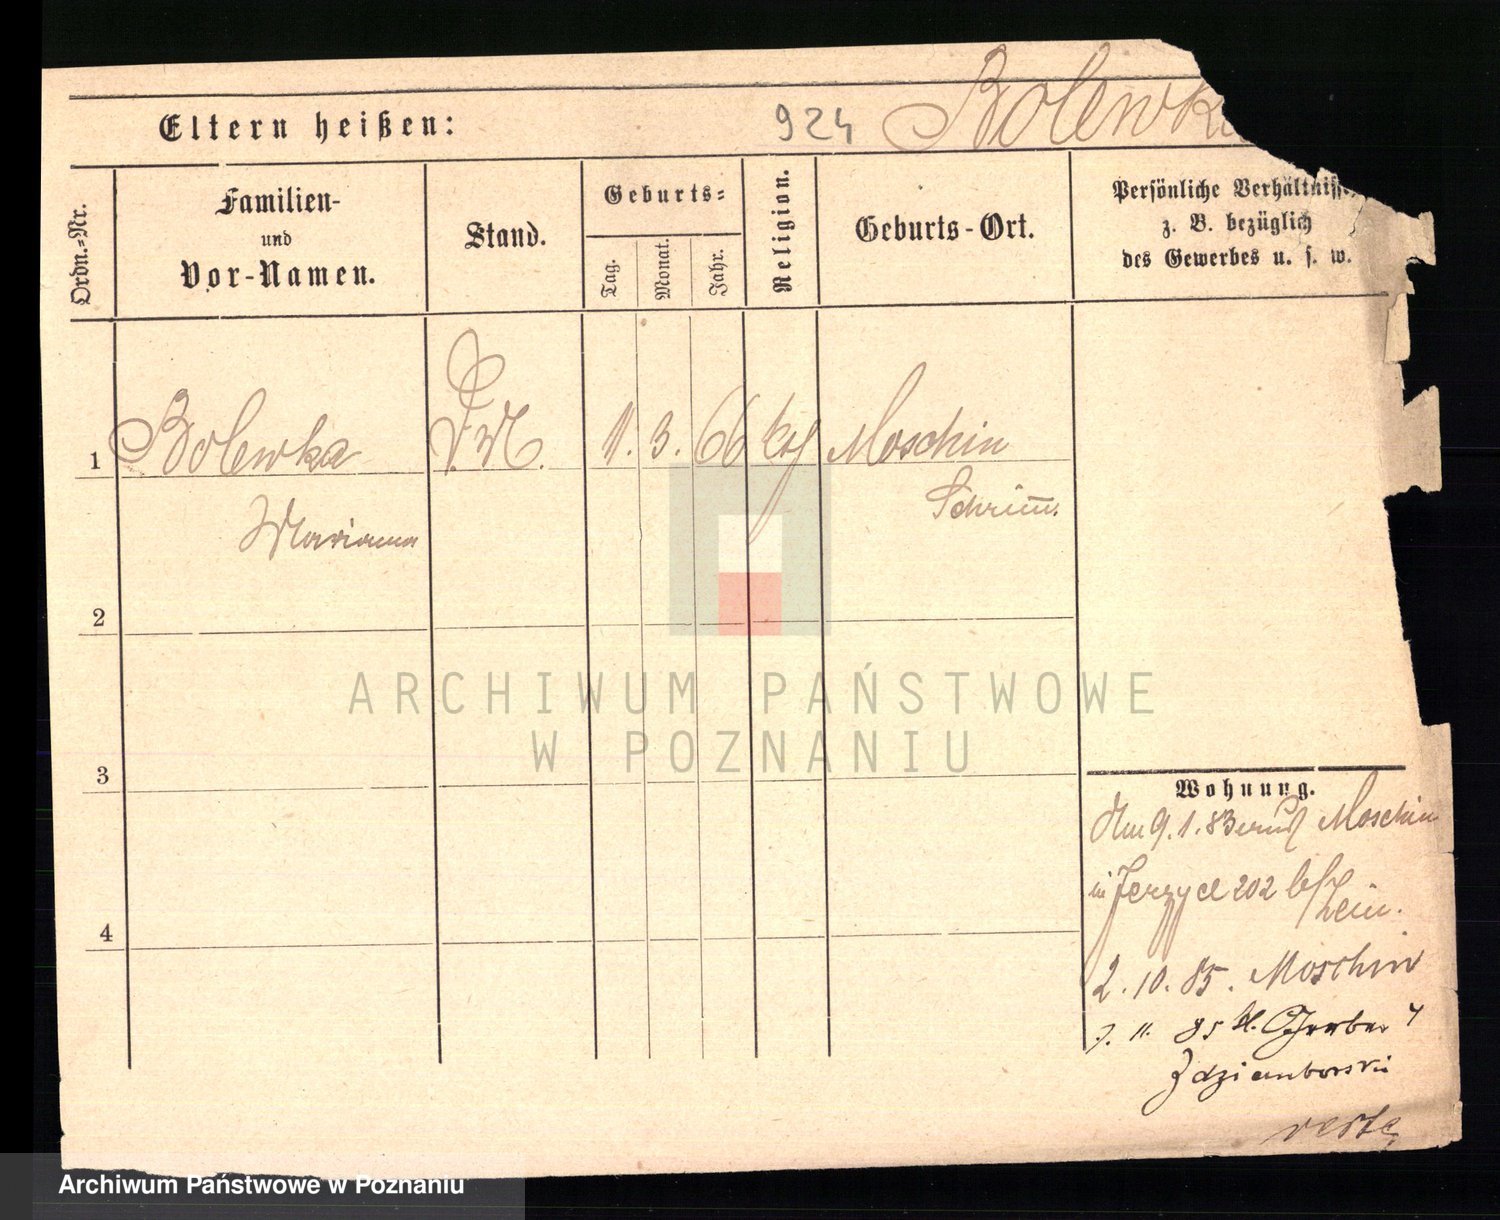 924 Bolewka
Eltern heißen:
Ordn.=Nr.
Familien-
und
Vor-Namen.
Stand.
Geburts=
Tag.
Monat.
Jahr.
Religion.
Geburts-Ort.
Persönliche Verhältnisse
z. B. bezüglich
des Gewerbes u. s. w.
1 Bolewka D.M. 1. 3. 66 kth Moschin
Marianna Schrim̅.
2
3
4
Wohnung.
Am 9. 1. 83 Moschin
in Jerzyce 202
2. 10. 85. Moschin
7. 11. 85 kl. Gerber 4
Zdziemborski
verte
ARCHIWUM PAŃSTWOWE
W POZNANIU
Archiwum Państwowe w Poznaniu